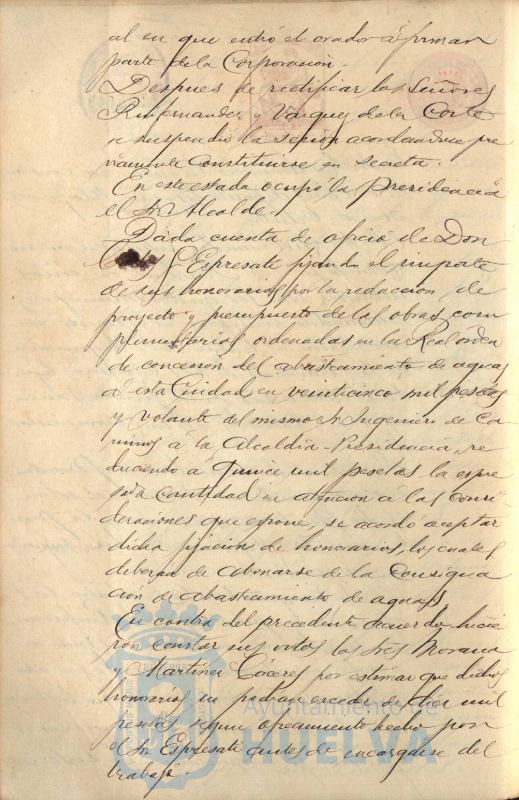 al en que entró el orador á formar
parte de la Corporación.
Despues de rectificar los Señores
y Vazquez de la Corte
se suspendió la sesion acordandose pre
viamente Constituirse en Secreta.
En este estado ocupó la Presidencia
el Sr. Alcalde.
Dada cuenta de oficio de Don
Espresate fijando el importe
de sus honorarios por la redaccion de
proyecto y presupuesto de las obras com
plementarias ordenadas en la Real órden
de concesion del abastecimiento de aguas
á esta Ciudad, en veinticinco mil pesetas
y volante del mismo Sr. Ingeniero de Ca
minos á la Alcaldia-Presidencia, re
duciendo á quince mil pesetas la espre
sada cantidad en atencion á las Consi
deraciones que espone, se acordó aceptar
dicha fijacion de honorarios, los cuales
deberan de abonarse de la Consigna
cion de abastecimiento de aguas.
En contra del precedente acuerdo hicie
ron constar sus votos los Sres Morano
y Martinez Cáceres por estimar que dichos
honorarios no podian exceder de diez mil
pesetas segun ofrecimiento hecho por
el Sr. Espresate antes de encargarse del
trabajo.
Ayuntamiento de
HUELVA